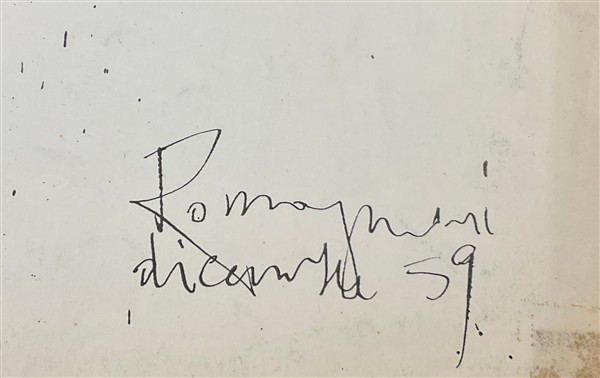 Romagnoni
dicembre 59